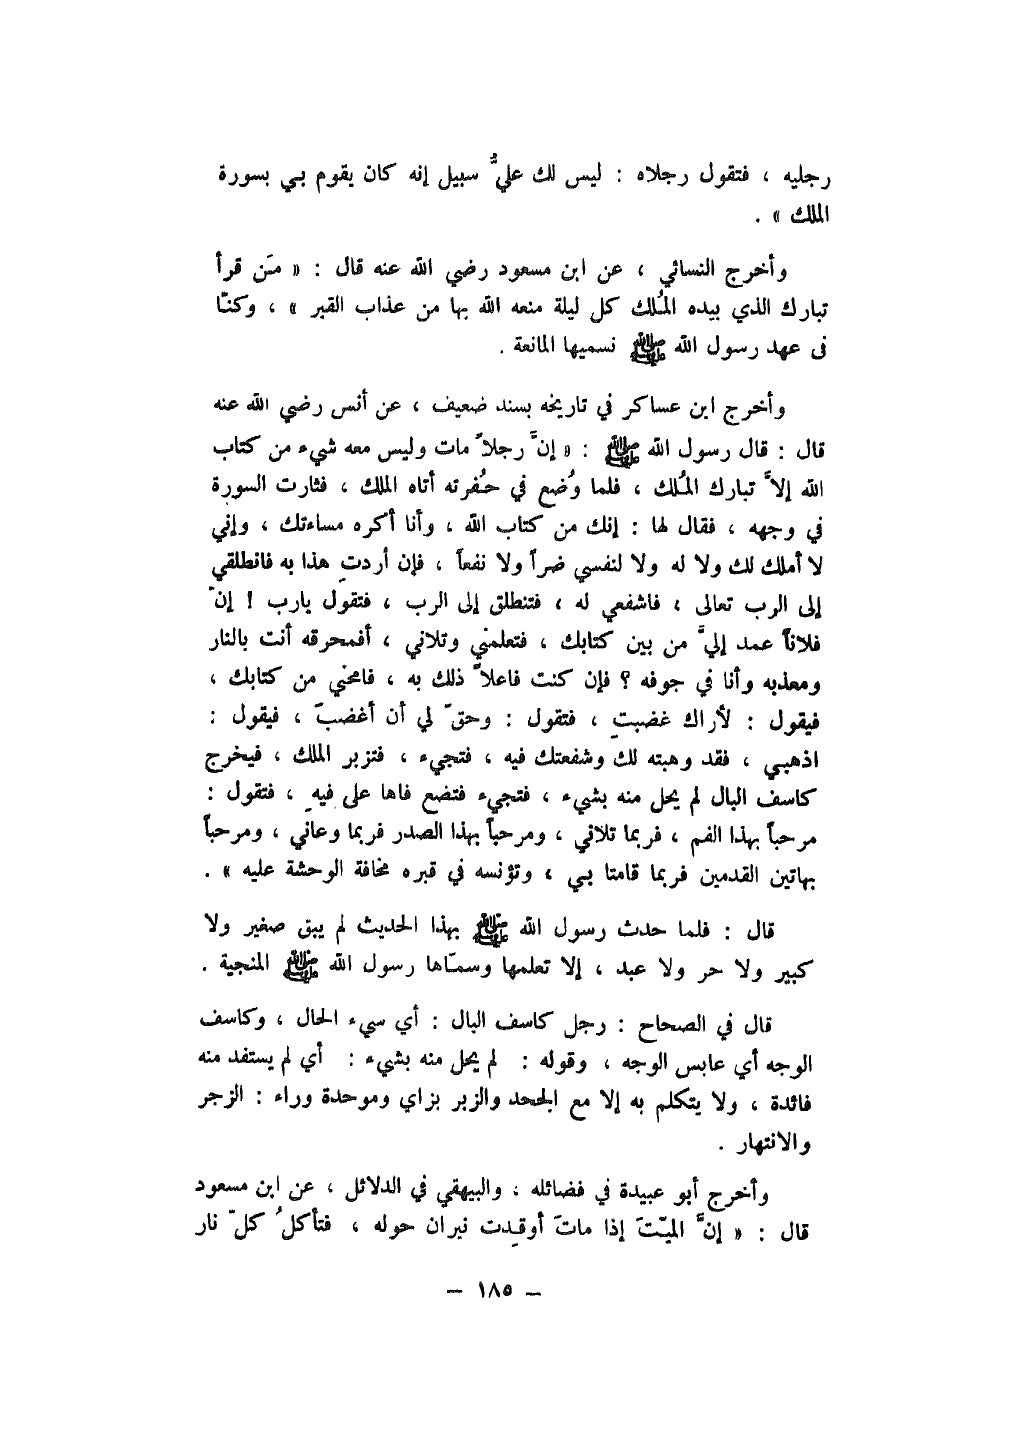 رجليه ، فتقول رجلاه : ليس لك عليُّ سبيل إنه كان يقوم بـي بسورة
الملك » .
وأخرج النسائي ، عن ابن مسعود رضي الله عنه قال : « مَن قرأ
تبارك الذي بيده المُلك كل ليلة منعه الله بها من عذاب القبر » ، وكنّا
فى عهد رسول الله ﷺ نسميها المانعة .
وأخرج ابن عساكر في تاريخه بسند ضعيف ، عن أنس رضي الله عنه
قال : قال رسول الله ﷺ : « إنَّ رجلاً مات وليس معه شيء من كتاب
الله إلاَّ تبارك المُلك ، فلما وُضع في حُفرته أتاه الملك ، فثارت السورة
في وجهه ، فقال لها : إنك من كتاب الله ، وأنا أكره مساءتك ، وإني
لا أملك لك ولا له ولا لنفسي ضراً ولا نفعاً ، فإن أردتِ هذا به فانطلقي
إلى الرب تعالى ، فاشفعي له ، فتنطلق إلى الرب ، فتقول يارب ! إنّ
فلاناً عمد إليَّ من بين كتابك ، فتعلمني وتلاني ، أفمحرقه أنت بالنار
ومعذبه وأنا في جوفه ؟ فإن كنت فاعلاً ذلك به ، فامحني من كتابك ،
فيقول : لأراك غضبتِ ، فتقول : وحقّ لي أن أغضبَ ، فيقول :
اذهبـي ، فقد وهبته لك وشفعتك فيه ، فتجيء ، فتزبر الملك ، فيخرج
كاسف البال لم يحل منه بشيء ، فتجيء فتضع فاها على فيهِ ، فتقول :
مرحباً بهذا الفم ، فربما تلاني ، ومرحباً بهذا الصدر فربما وعاني ، ومرحباً
بهاتين القدمين فربما قامتا بـي ، وتؤنسه في قبره مخافة الوحشة عليه » .
قال : فلما حدث رسول الله ﷺ بهذا الحديث لم يبق صغير ولا
كبير ولا حر ولا عبد ، إلا تعلمها وسمّاها رسول الله ﷺ المنجية .
قال في الصحاح : رجل كاسف البال : أي سيء الحال ، وكاسف
الوجه أي عابس الوجه ، وقوله : لم يحل منه بشيء : أي لم يستفد منه
فائدة ، ولا يتكلم به إلا مع الجحد والزبر بزاي وموحدة وراء : الزجر
والانتهار .
وأخرج أبو عبيدة في فضائله ، والبيهقي في الدلائل ، عن ابن مسعود
قال : « إنَّ الميّتَ إذا ماتَ أوقِدت نيران حوله ، فتأكلُ كلّ نار
– ١٨٥ –